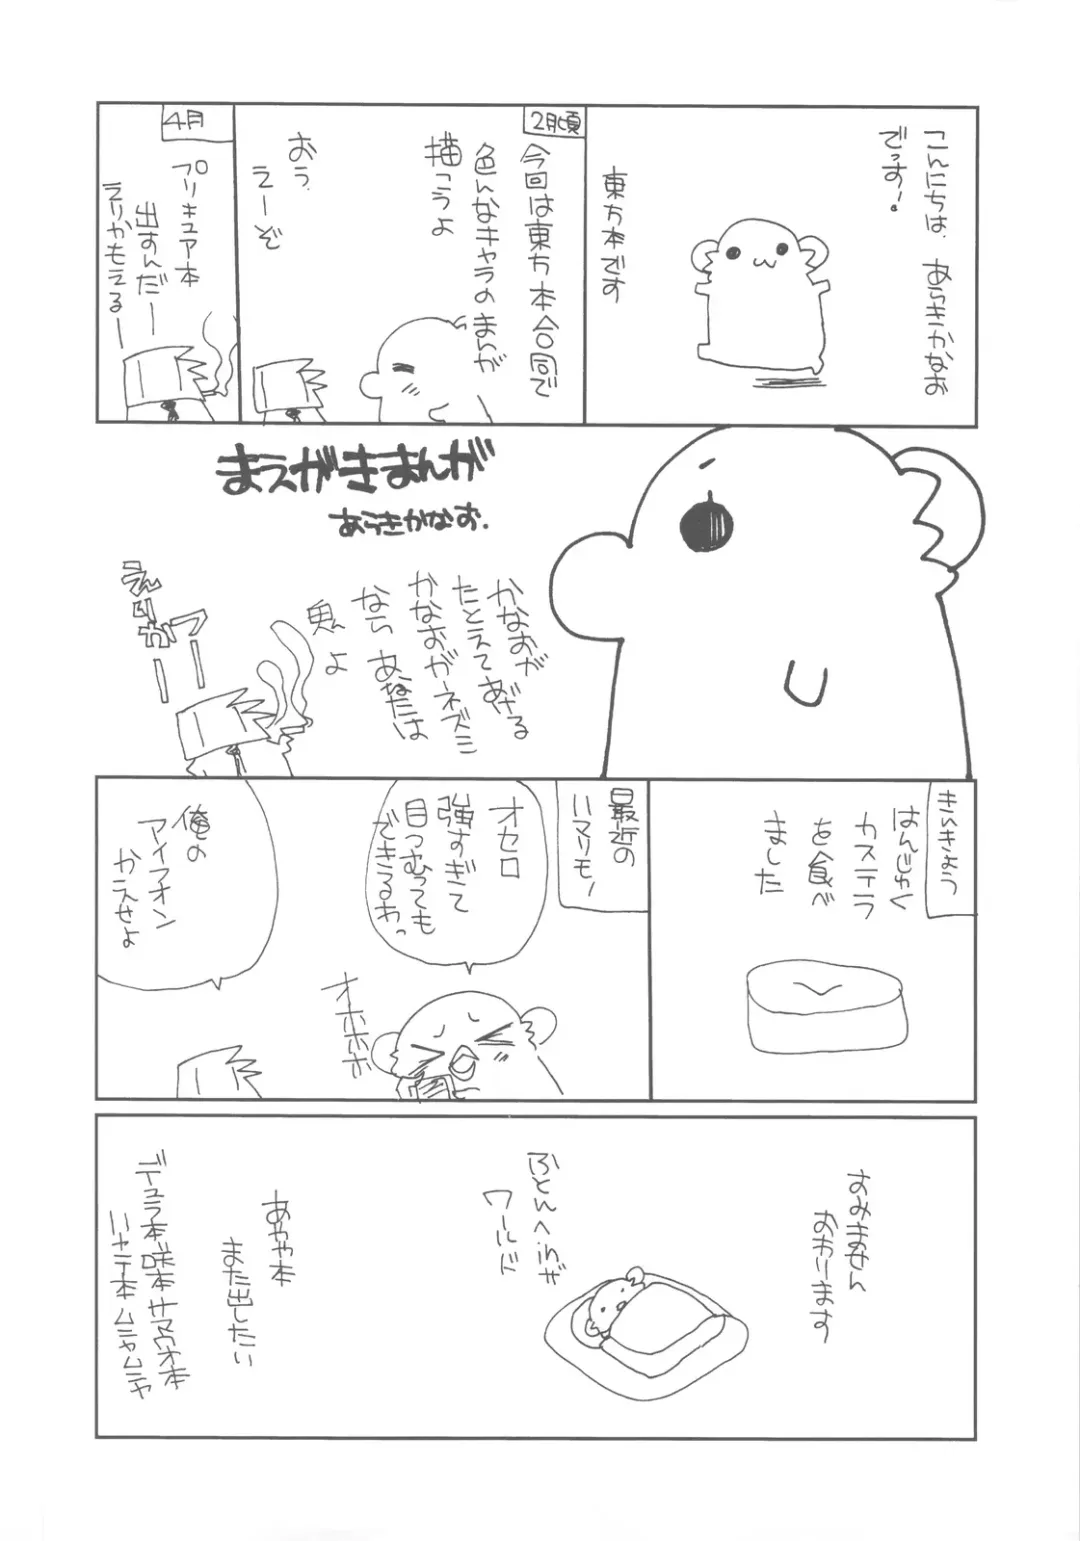 こんにちは、あらきかなお
でっす!
東方本です
2月頃
今回は東方本合同で
色んなキャラのまんが
描こうよ
おう、
えーぞ
4月
プリキュア本
出すんだー
えりかもえるー
まえがきまんが
あらきかなお.
かなおが
たとえてあげる
かなおがネズミ
なら あなたは
魚よ
えりかー
っー
きんきょう
はんじゅく
カステラ
を食べ
ました
最近の
ハマリモノ
オセロ
強すぎて
目つむってても
できるわっ
オホホホ
俺の
アイフォン
かえせよ
すみません
おわります
ふとんへinザ
ワールド
あやや本
また出したい
デュラ本咲本サマウオ本
ハヤテ本ムニャムニャ